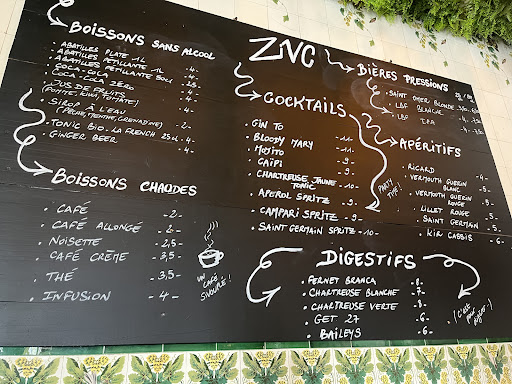 ZNC
BOISSONS SANS ALCOOL
. ABATILLES PLATE 1L - 4 -
. ABATILLES PETILLANTE 1L - 4 -
. ABATILLES PETILLANTE 50CL
. COCA-COCA
. COCA-COLA ZERO - 4 -
. JUS DE FRUITS - 4 -
(POMME, KIWI, TOMATE)
. SIROP À L'EAU - 2 -
(PÊCHE, MENTHE, GRENADINE)
. TONIC BIO LA FRENCH 25CL - 4 -
. GINGER BEER - 4 -
BOISSONS CHAUDES
. CAFÉ - 2 -
. CAFÉ ALLONGÉ - 2 -
. NOISETTE - 2,5 -
. CAFÉ CRÈME - 3,5 -
. THÉ - 3,5 -
. INFUSION - 4 -
UN
CAFÉ
SIOUPLÉ !
COCKTAILS
. GIN TO
. BLOODY MARY - 11 -
. MOJITO - 11 -
. CAÏPI - 9 -
. CHARTREUSE JAUNE TONIC - 10 -
. APEROL SPRITZ - 9 -
. CAMPARI SPRITZ - 9 -
. SAINT GERMAIN SPRITZ - 10 -
PARTY
TIME !
BIÈRES PRESSIONS
. SAINT OMER BLONDE
. LBF BLANCHE
. LBF IPA
APÉRITIFS
. RICARD - 4 -
. VERMOUTH GUERIN BLANC - 5 -
. VERMOUTH GUERIN ROUGE - 5 -
. LILLET ROUGE - 5 -
. SAINT GERMAIN - 5 -
. KIR CASSIS - 6 -
DIGESTIFS
. FERNET BRANCA - 8 -
. CHARTREUSE BLANCHE - 7 -
. CHARTREUSE VERTE - 8 -
. GET 27 - 6 -
. BAILEYS - 6 -
(C'EST
POUR
DIGÉRER :)